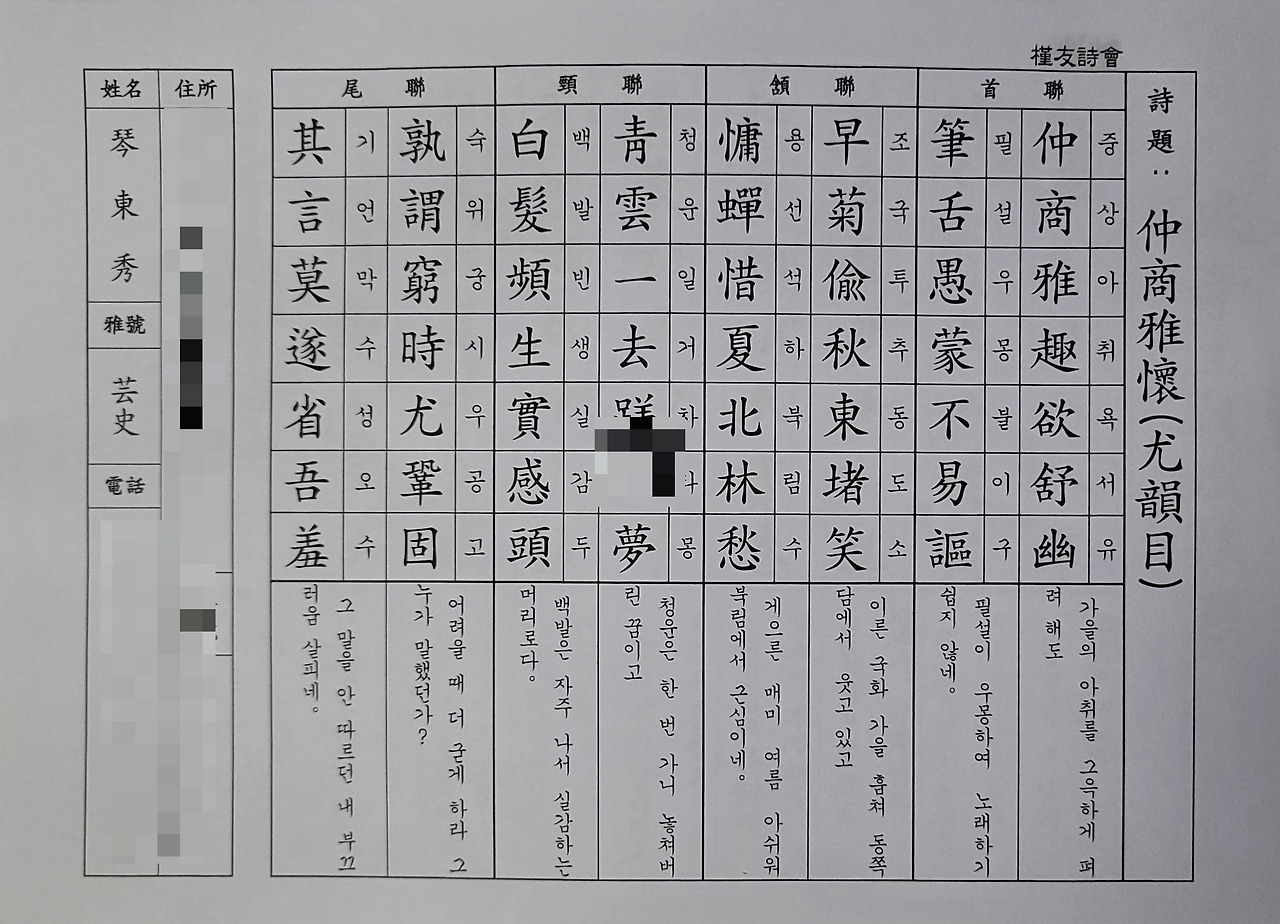 槿友詩會
詩題: 仲商雅懷(尤韻目)
首聯
仲商雅趣欲舒幽
중상아취욕서유
가을의 아취를 그윽하게 펴
려 해도
筆舌愚蒙不易謳
필설우몽불이구
필설이 우몽하여 노래하기
쉽지 않네。
頷聯
早菊偸秋東堵笑
조국투추동도소
이른 국화 가을 훔쳐 동쪽
담에서 웃고 있고
慵蟬惜夏北林愁
용선석하북림수
게으른 매미 여름 아쉬워
북림에서 근심이네。
頸聯
靑雲一去 夢
청운일거 몽
청운은 한 번 가니 놓쳐버
린 꿈이고
白髮頻生實感頭
백발빈생실감두
백발은 자주 나서 실감하는
머리로다。
尾聯
孰謂窮時尤鞏固
숙위궁시우공고
어려울 때 더 굳게 하라 그
누가 말했던가?
其言莫遂省吾羞
기언막수성오수
그 말을 안 따르던 내 부끄
러움 살피네。
住所
姓名
琴東秀
雅號
芸史
電話